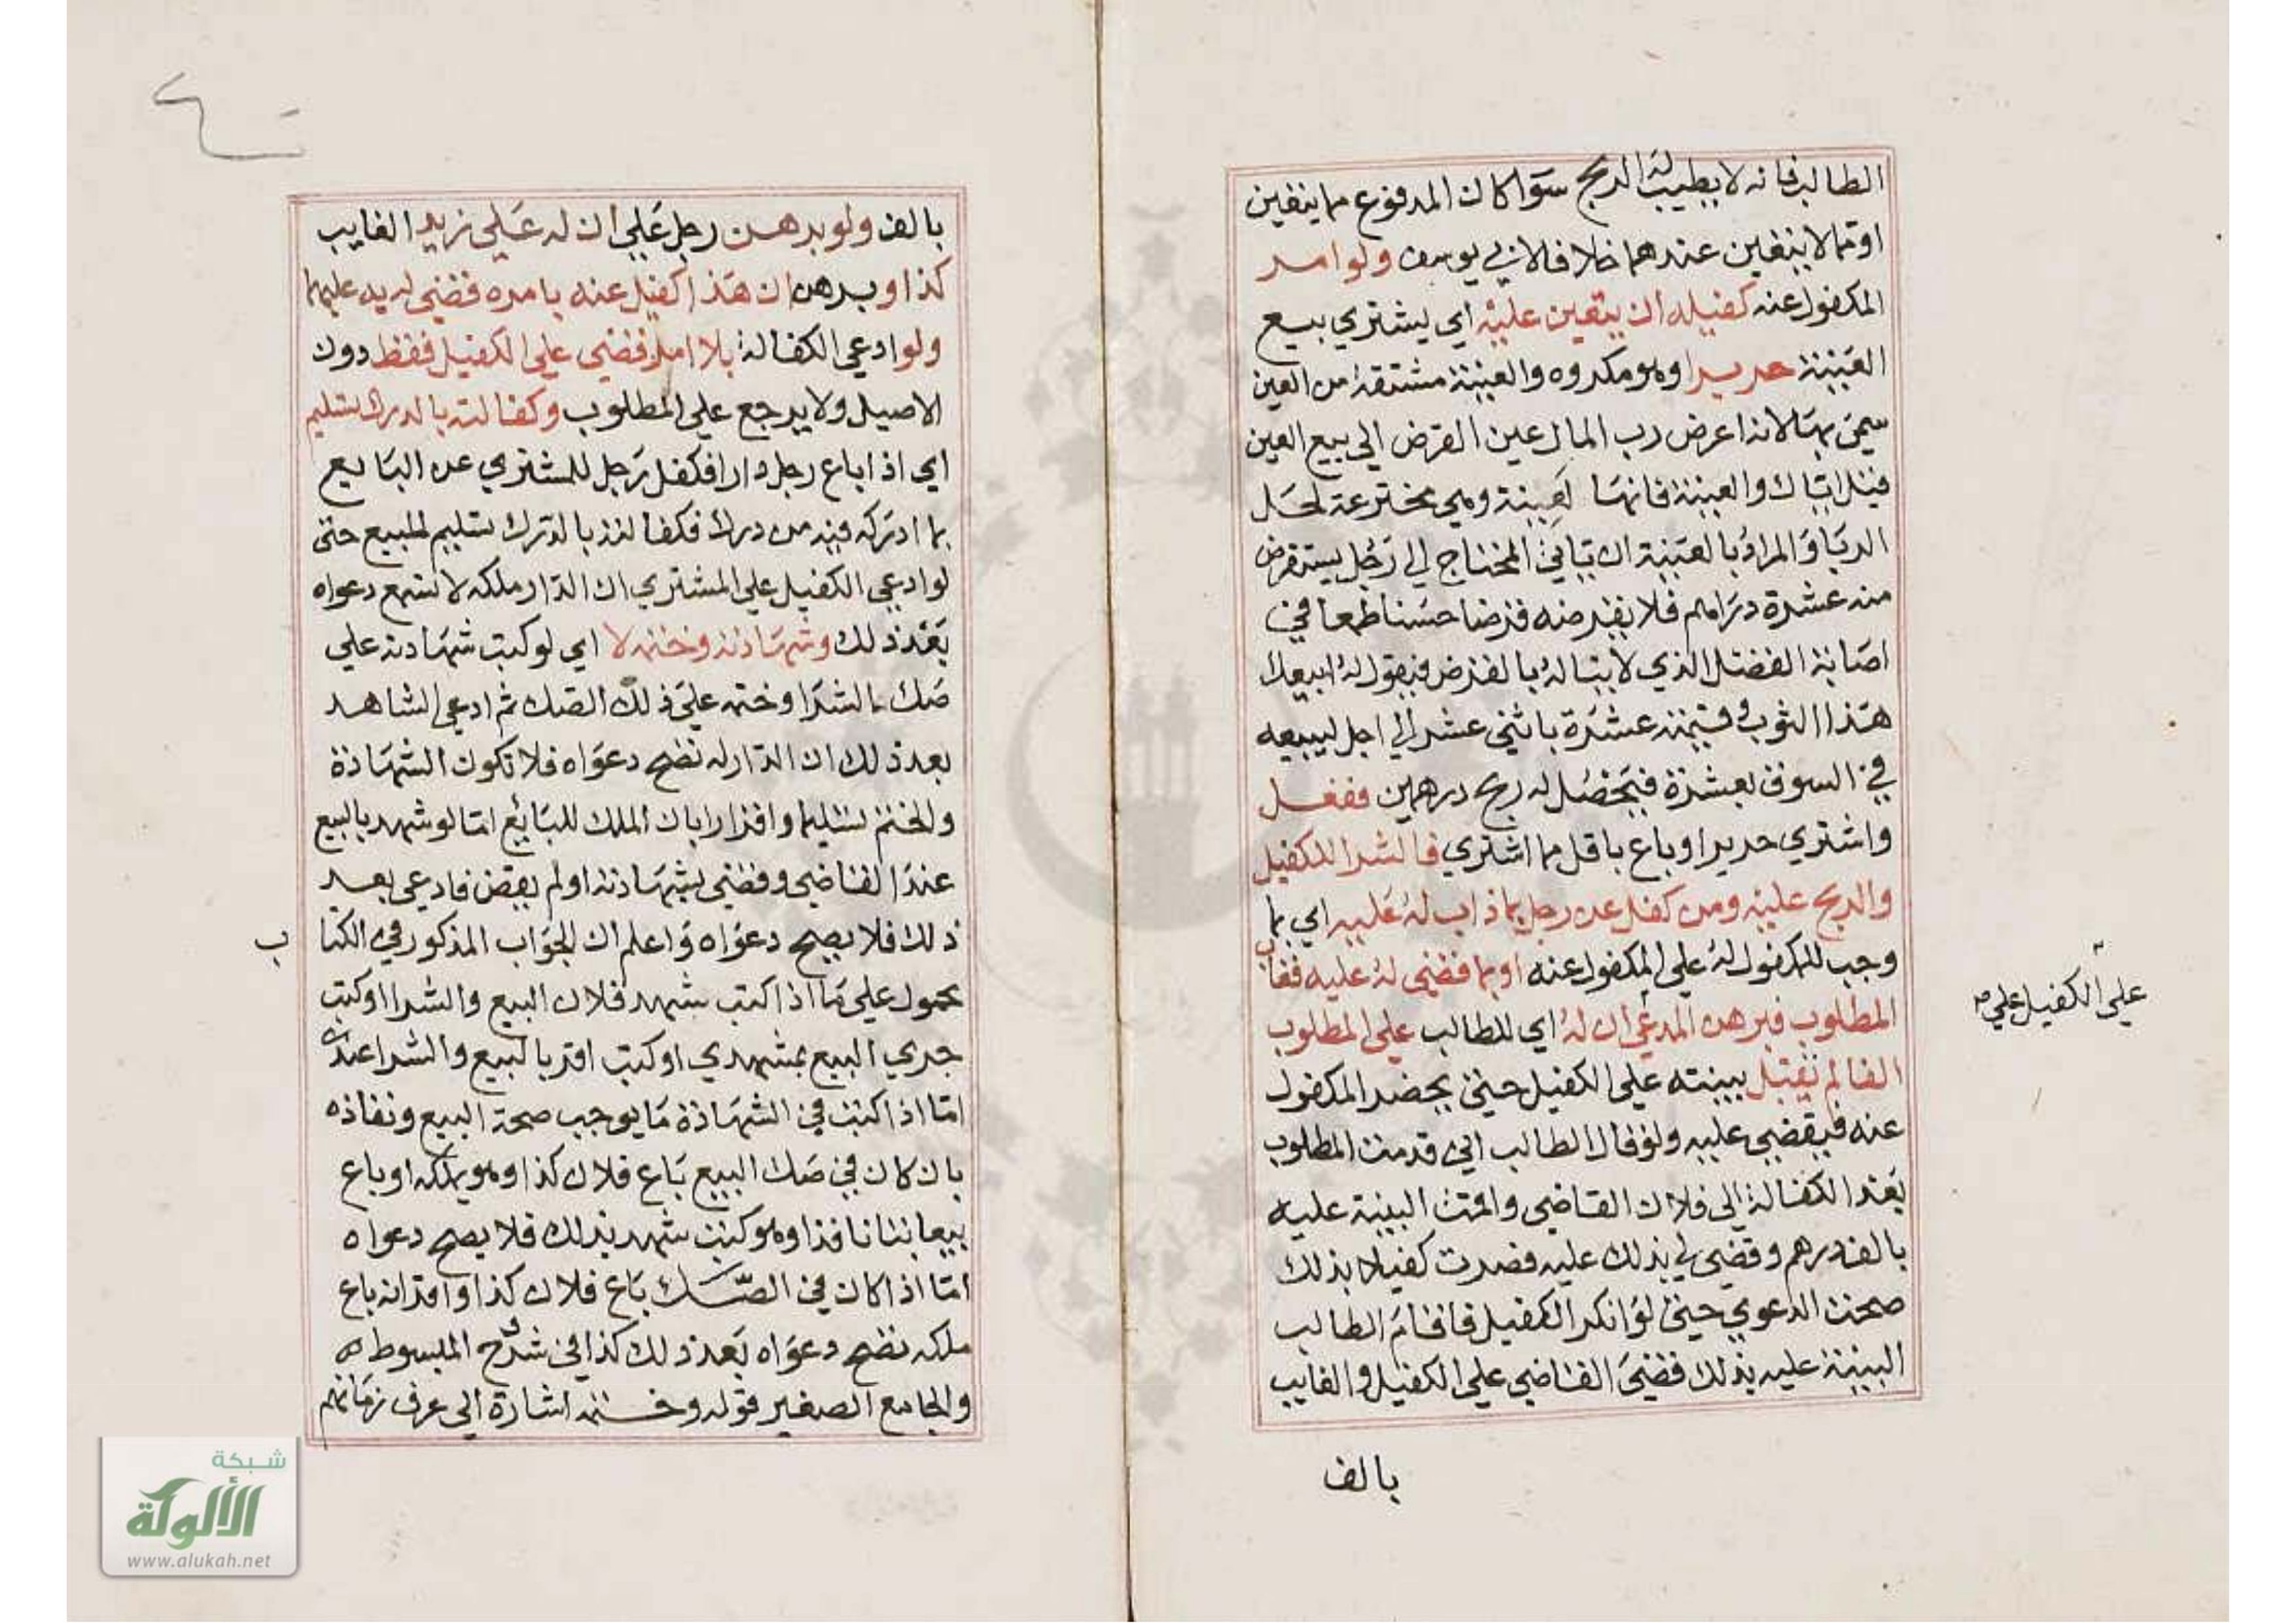 الطالب فانه لا يطيب له الربح سوا كان المدفوع مما يتعين
او مما لا يتعين عندهما خلافا لابي يوسف ولو امر
المكفول عنه كفيله ان يتعين عليه اي يشتري ببيع
العينة حريرا وهو مكروه والعينة مشتقة من العين
سمي بها لانه اعرض رب المال عين القرض الي بيع العين
قيل اياك والعينة فانها لعينة وهي مخترعة لحل
الربا والمراد بالعينة ان ياتي المحتاج الي رجل يستقرض
منه عشرة دراهم فلا يقرضه قرضا حسنا طمعا في
اصابة الفضل الذي لا يناله بالقرض فيقول له ابيعك
هذا الثوب وقيمته عشرة باثني عشر الي اجل ليبيعه
في السوق بعشرة فيحصل له ربح درهمين ففعل
واشتري حريرا وباع باقل مما اشتري فالشرا للكفيل
والربح عليه ومن كفل عن رجل بما ذاب له عليه اي بما
وجب للمكفول له علي المكفول عنه او بما قضي له عليه فغاب
المطلوب فبرهن المدعي ان له اي للطالب علي المطلوب
الفا لم تقبل ببينته علي الكفيل حيتي يحضر المكفول
عنه فيقضي عليه ولو قال الطالب اني قدمت المطلوب
بعد الكفالة الي فلان القاضي واقمت البينة عليه
بالف درهم وقضي لي بذلك عليه فصرت كفيلا بذلك
صحت الدعوي حيتي لو انكر الكفيل فاقام الطالب
البينة عليه بذلك قضي القاضي علي الكفيل والغايب
علي الكفيل علي
بالف
بالف ولو برهن رجل علي ان له علي زيد الغايب
كذا وبرهن ان هذا كفيل عنه بامره قضي له به عليهما
ولو ادعي الكفالة بلا امر قضي علي الكفيل فقط دون
الاصيل ولا يرجع علي المطلوب وكفالته بالدرك تسليم
اي اذا باع رجل دارا فكفل رجل للمشتري عن البايع
بما ادركه فيه من درك فكفالته بالدرك تسليم لمبيع حتي
لو ادعي الكفيل علي المشتري ان الدار ملكه لا تسمع دعواه
بعد ذلك وشهادته وختمه لا اي لو كتب شهادته علي
صك بالشرا وختم علي ذلك الصك ثم ادعي الشاهد
بعد ذلك ان الدار له تصح دعواه فلا تكون الشهادة
والختم تسليما واقرارا بان الملك للبايع اما لو شهد بالبيع
عند القاضي وقضي بشهادته او لم يقض فادعي بعد
ذلك فلا يصح دعواه واعلم ان الجواب المذكور في الكتا
ب
محمول علي ما اذا كتب شهد فلان البيع والشرا او كتب
جري البيع بمشهدي او كتب اقر بالبيع والشرا عندي
اما اذا كتب في الشهادة ما يوجب صحة البيع ونفاذه
بان كان في صك البيع باع فلان كذا وهو يملكه او باع
بيعا باتا نافذا وهو كتب شهد بذلك فلا يصح دعواه
اما اذا كان في الصك باع فلان كذا او اقر انه باع
ملكه تصح دعواه بعد ذلك كذا في شرح المبسوط
والجامع الصغير قوله وختمه اشارة الي عرف زمانهم
شبكة
الألوكة
www.alukah.net